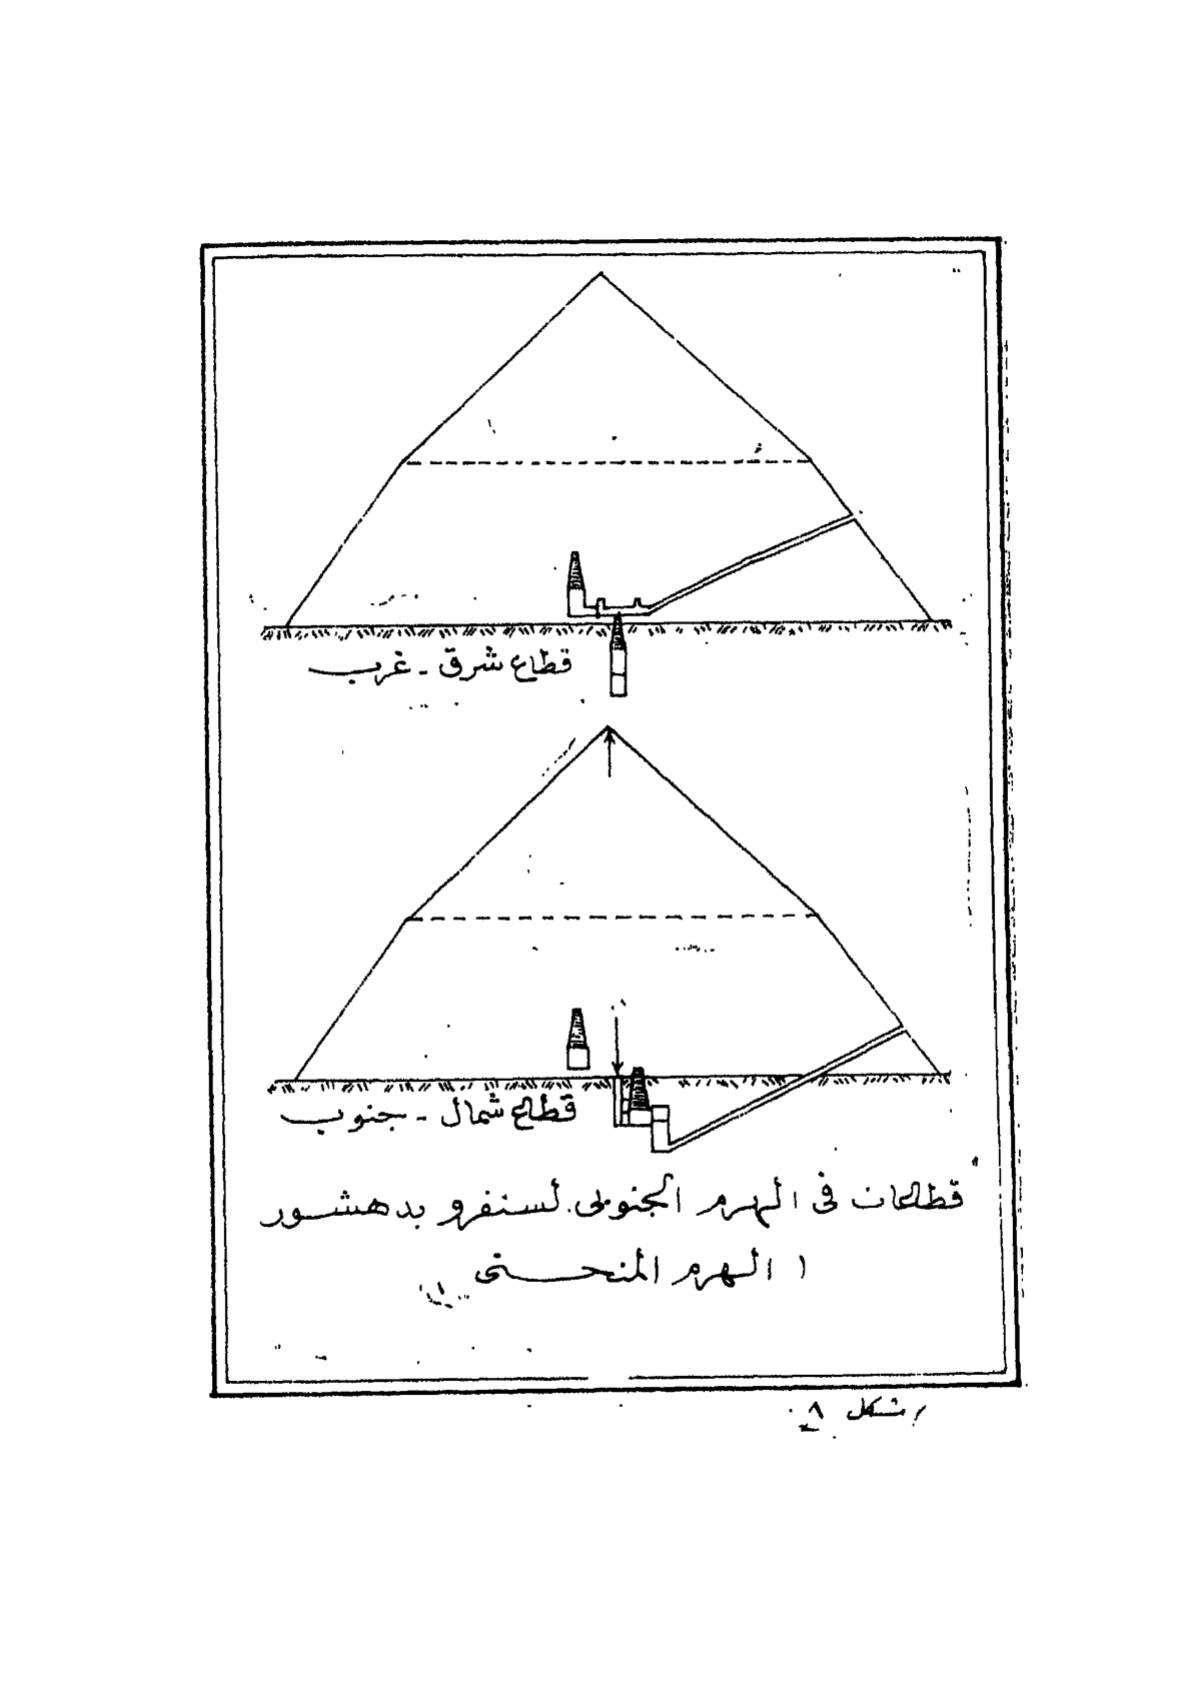 قطاع شرق - غرب
قطاع شمال - جنوب
قطاعان فى الهرم الجنوبى لسنفرو بدهشور
( الهرم المنحنى )
شكل ٨